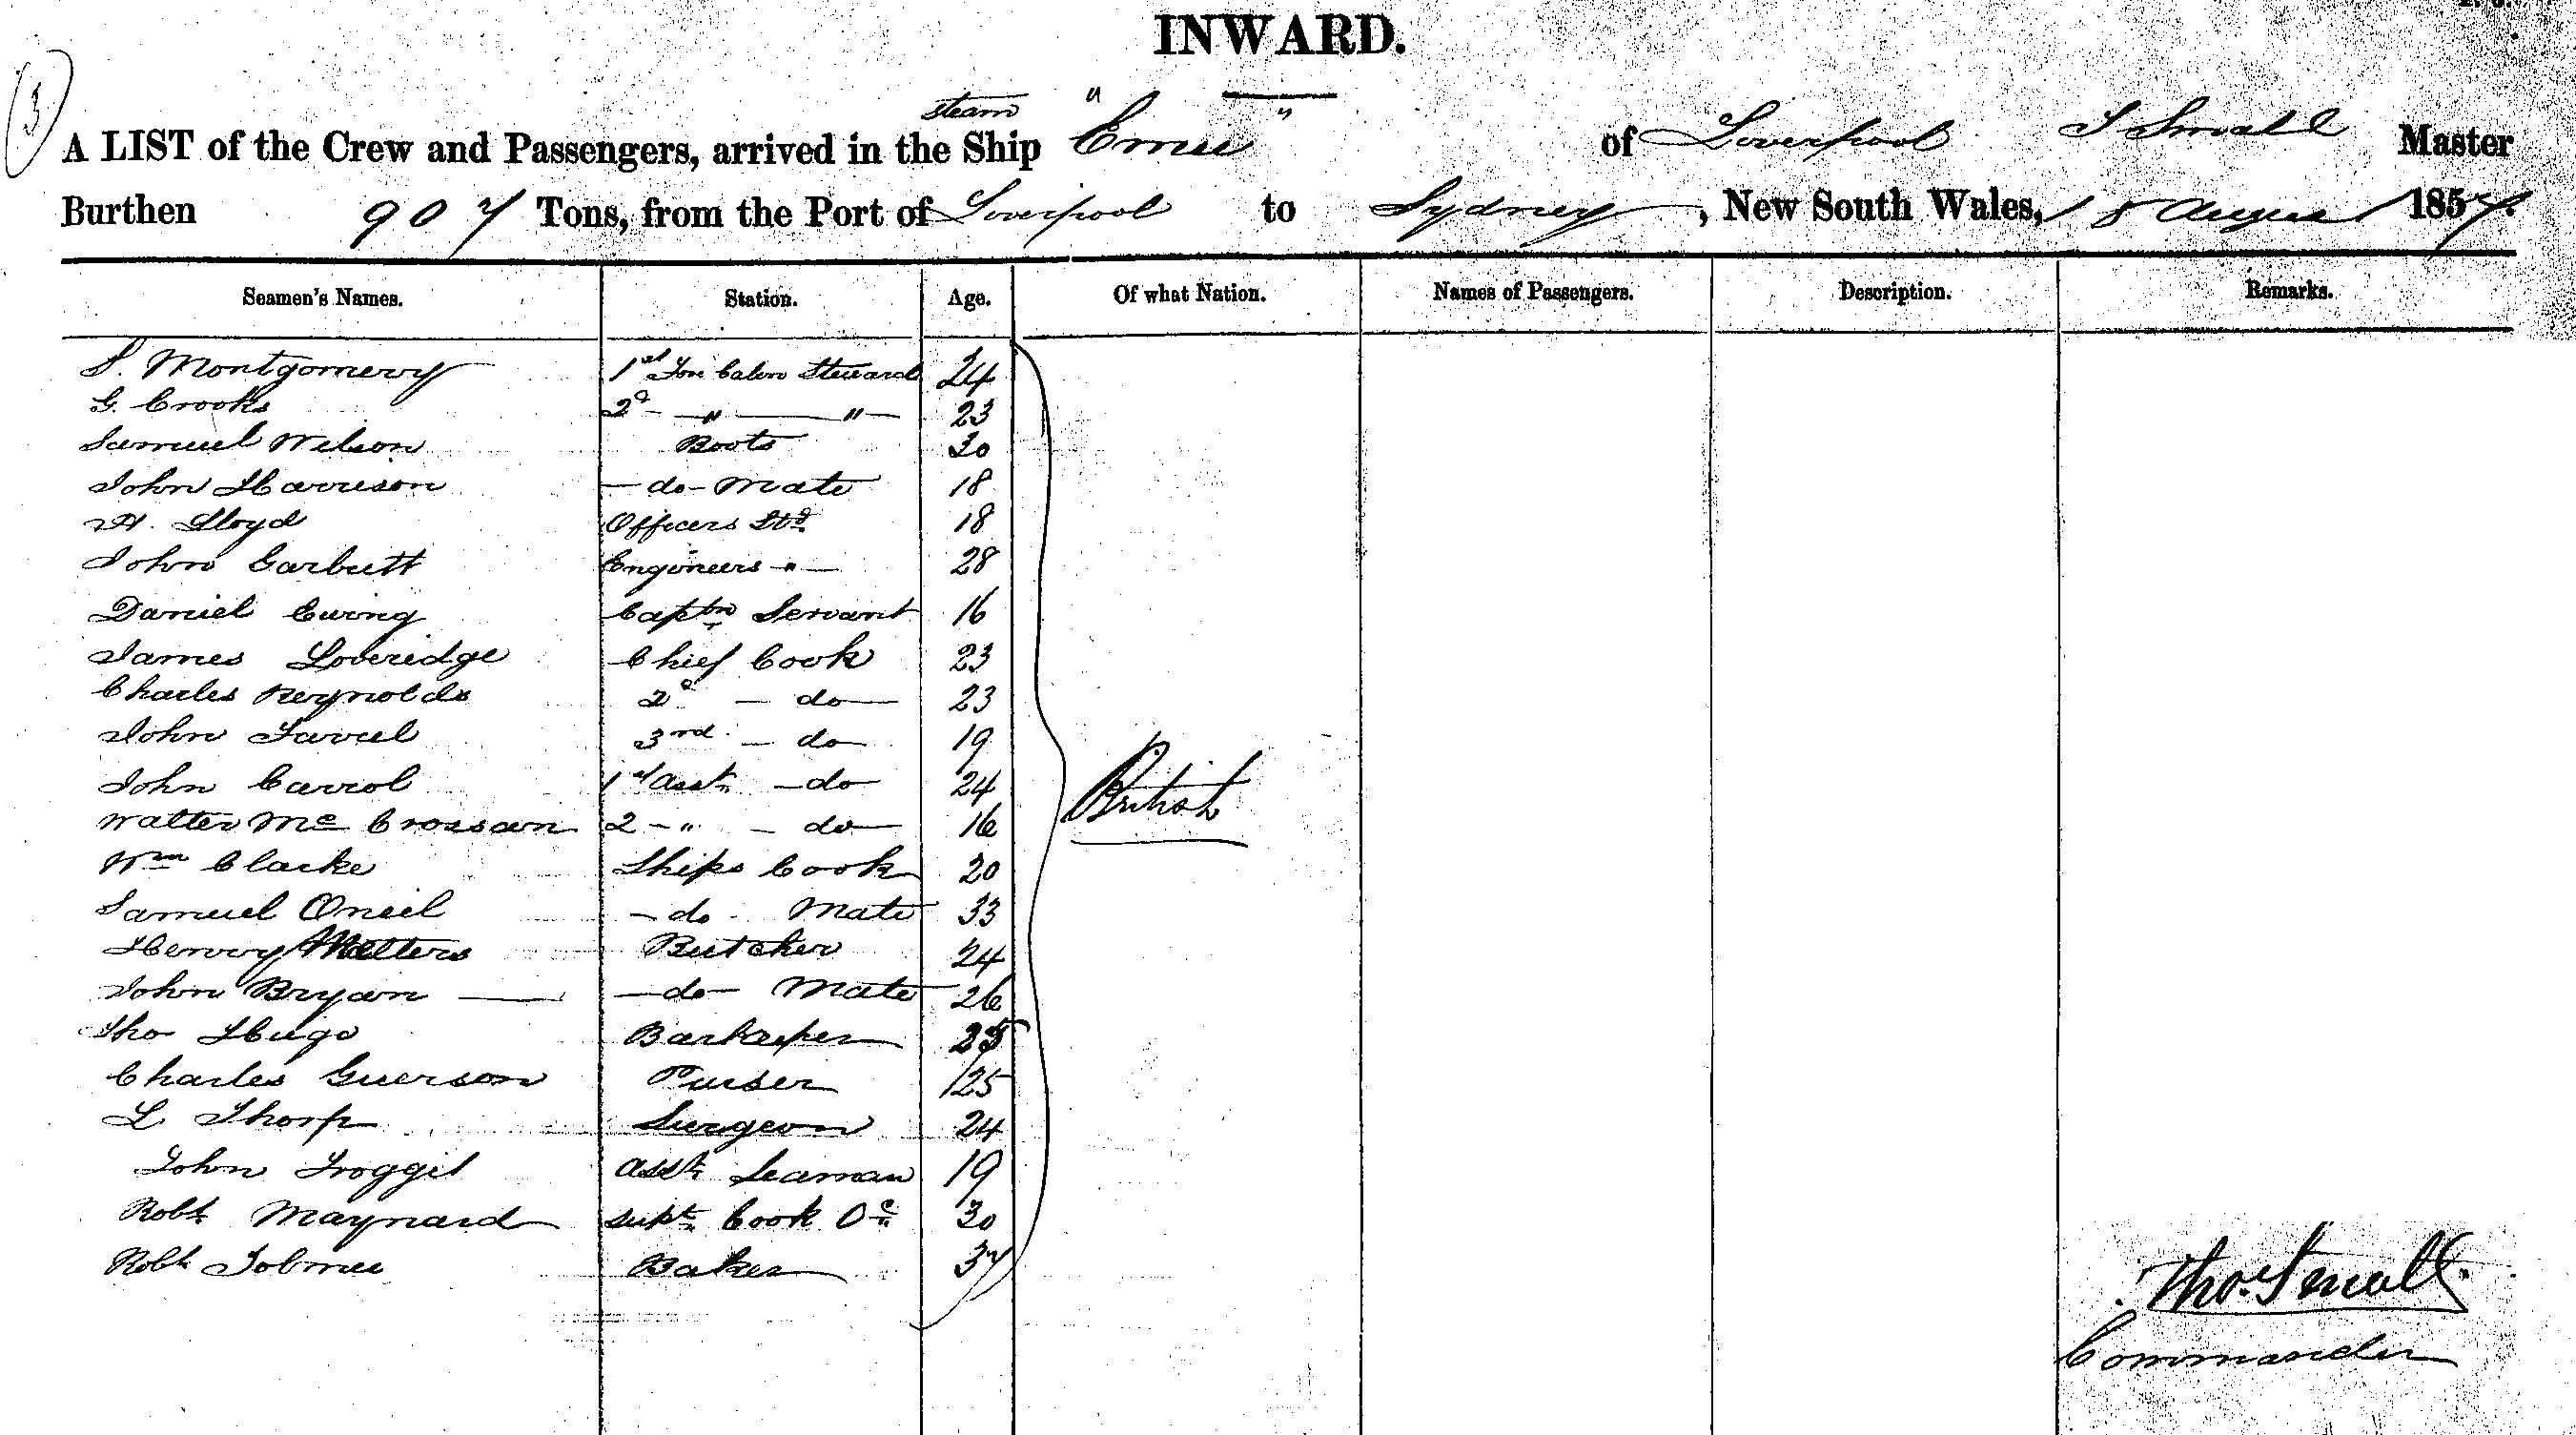 INWARD.
3
steam
A LIST of the Crew and Passengers, arrived in the Ship "Emu" of Liverpool T Small Master
Burthen 907 Tons, from the Port of Liverpool to Sydney, New South Wales, 18 August 1857.
Seamen's Names. Station. Age. Of what Nation. Names of Passengers. Description. Remarks.
S. Montgomery 1st Fore Cabin Steward 24
G. Crooks 2d — " — " — 23
Samuel Wilson Boots 30
John Harrison — do — Mate 18
H. Lloyd Officers Std 18
John Garbutt Engineers " — 28
Daniel Ewing Captn Servant 16
James Loveridge Chief Cook 23
Charles Reynolds 2d — do — 23
John 3rd — do 19
John Carrol 1st Asst — do 24
British
Walter Mc Crossan 2 — " — do 16
Wm Clarke Ships Cook 20
Samuel Oneil — do Mate 33
Henry Butcher 24
John Bryan — do — Mate 26
Tho Hugo Barkeeper 25
Charles Guerson Purser 25
L. Thorp Surgeon 24
John Froggit Asst Seaman 19
Robt Maynard Cook 30
Robt Baker 37
Thos Small.
Commander